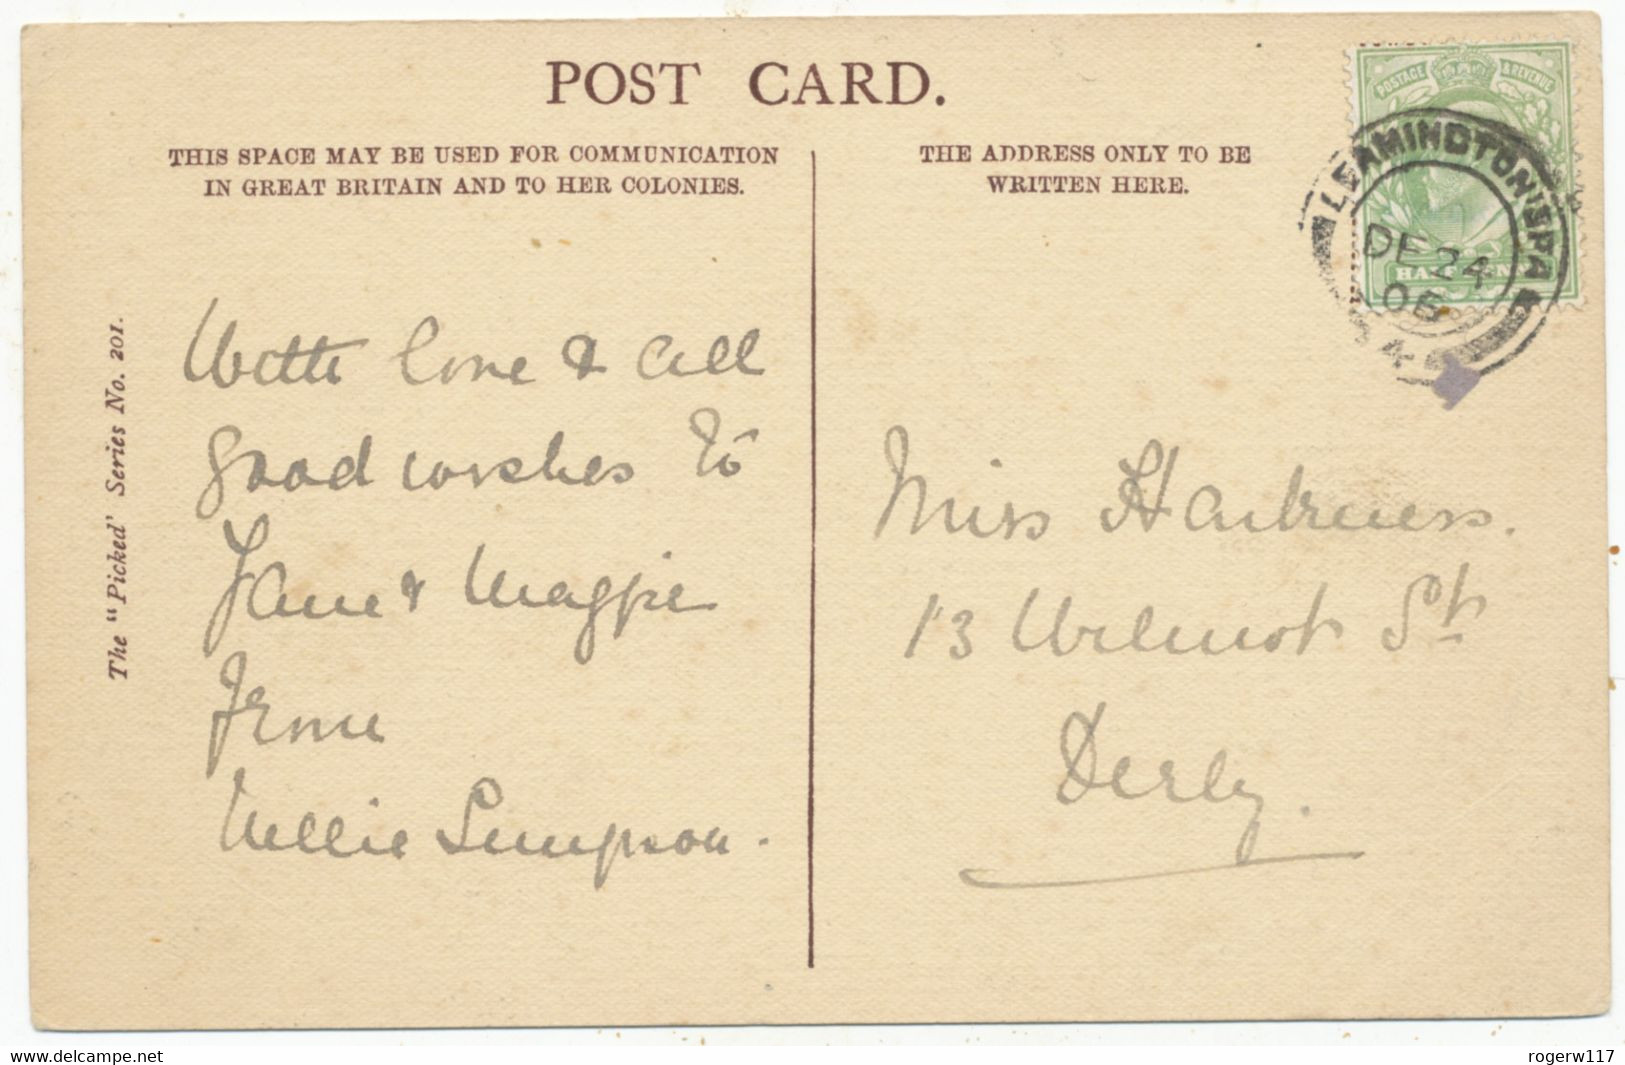 POST CARD.
THIS SPACE MAY BE USED FOR COMMUNICATION
IN GREAT BRITAIN AND TO HER COLONIES.
THE ADDRESS ONLY TO BE
WRITTEN HERE.
POSTAGE & REVENUE
HALFPENNY
LEAMINGTON SPA
DE 24
The "Picked' Series No. 201.
With love & all
good wishes to
Jane & Magpie
From
Nellie Simpson.
Miss Harkness.
13 Wilmot St
Derby.
www.delcampe.net
rogerw117